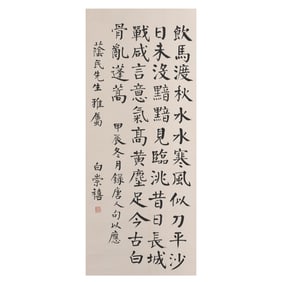 飲馬渡秋水水寒風似刀平沙
日未沒黯黯見臨洮昔日長城
戰咸言意氣高黃塵足今古白
骨亂蓬蒿 甲辰冬月錄唐人句以應
蔭民先生雅屬 白崇禧